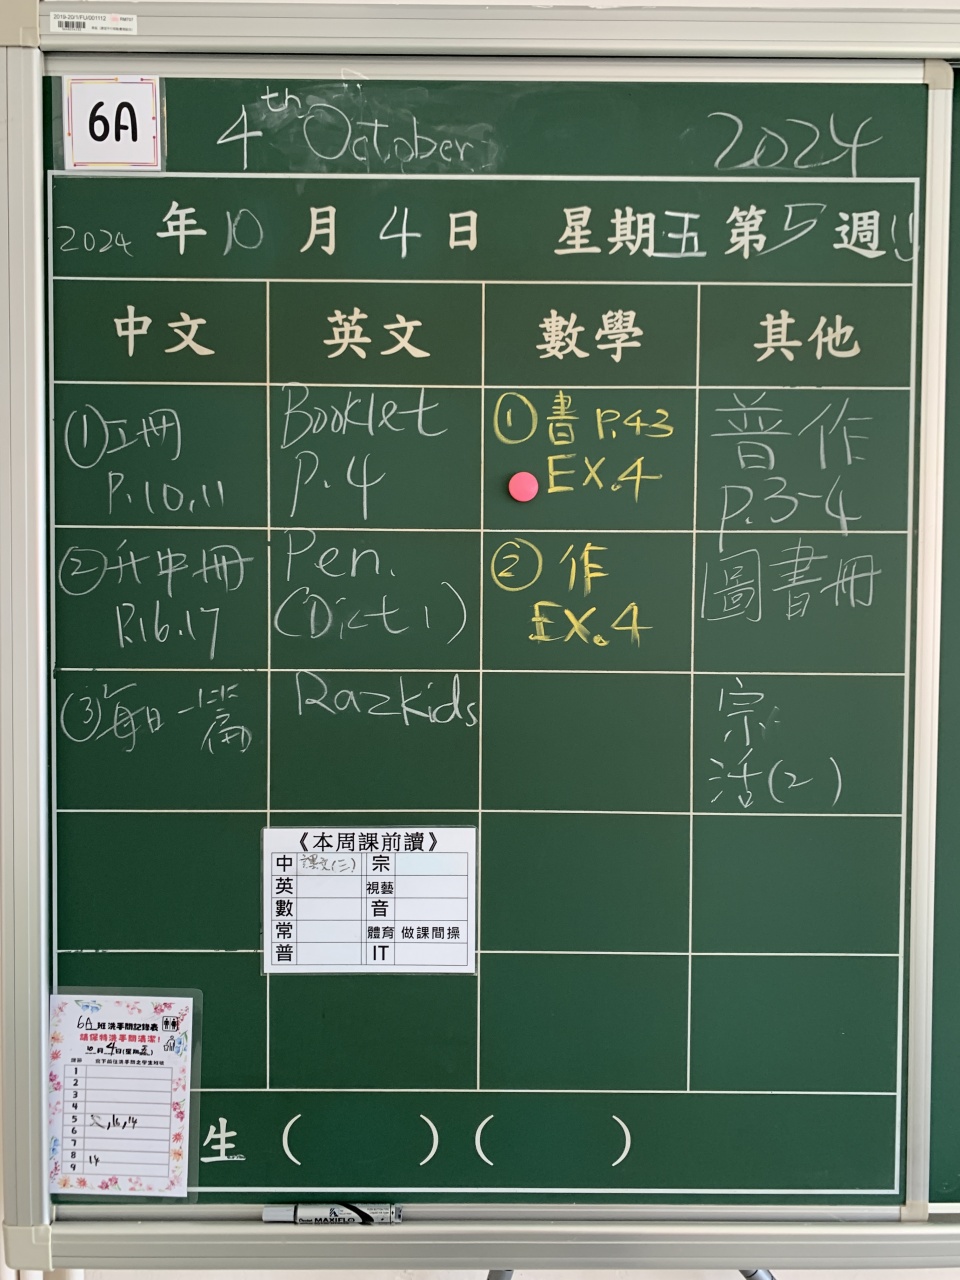 2019-20/1/FU/001112
6A
4th October 2024
2024 年 10 月 4 日 星期五 第 5 週
中文 英文 數學 其他
①工冊
P.10,11
Booklet
P.4
①書 P.43
EX.4
普作
P.3-4
②升中冊
P.16.17
Pen.
(Dict 1)
② 作
EX.4
圖書冊
③每日一篇
Razkids
宗
活(2)
《本周課前讀》
中 課文(三) 宗
英 視藝
數 音
常 體育 做課間操
普 IT
6A 班洗手間記錄表
請保持洗手間清潔!
10 月 4 日(星期五)
1
2
3
4
5 ,16,14
6
7
8 14
9
生 ( ) ( )
MAXIFLO